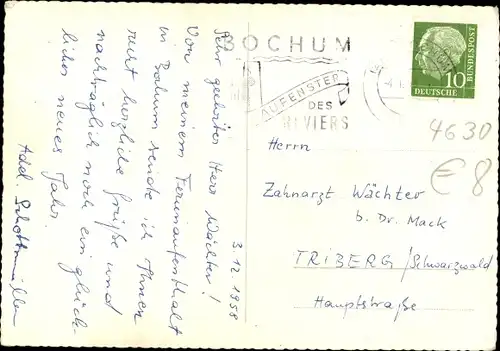 BOCHUM
SCHAUFENSTER
DES
REVIERS
10
DEUTSCHE
BUNDESPOST
4630
€8
3.12.1958
Sehr geehrter Herr Wächter!
Von meinem Ferienaufenthalt
in Bochum sende ich Ihnen
recht herzliche Grüße und
nachträglich noch ein glück-
liches neues Jahr.
Adel.
Herrn
Zahnarzt Wächter
b. Dr. Mack
TRIBERG/Schwarzwald
Hauptstraße